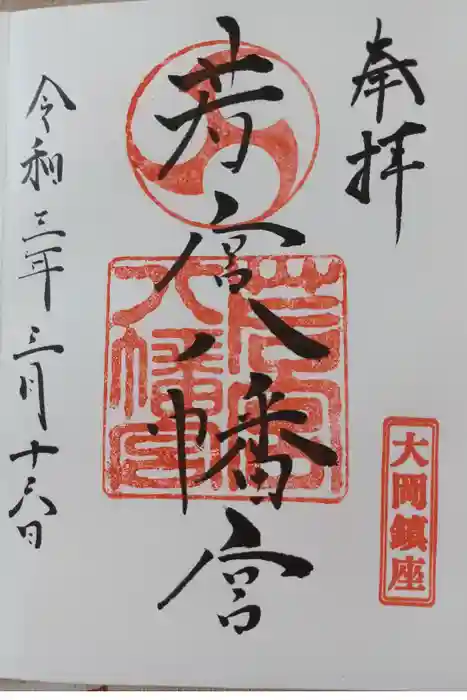 奉拝
大岡鎮座
若宮八幡宮
若宮
八幡宮
令和三年三月十六日